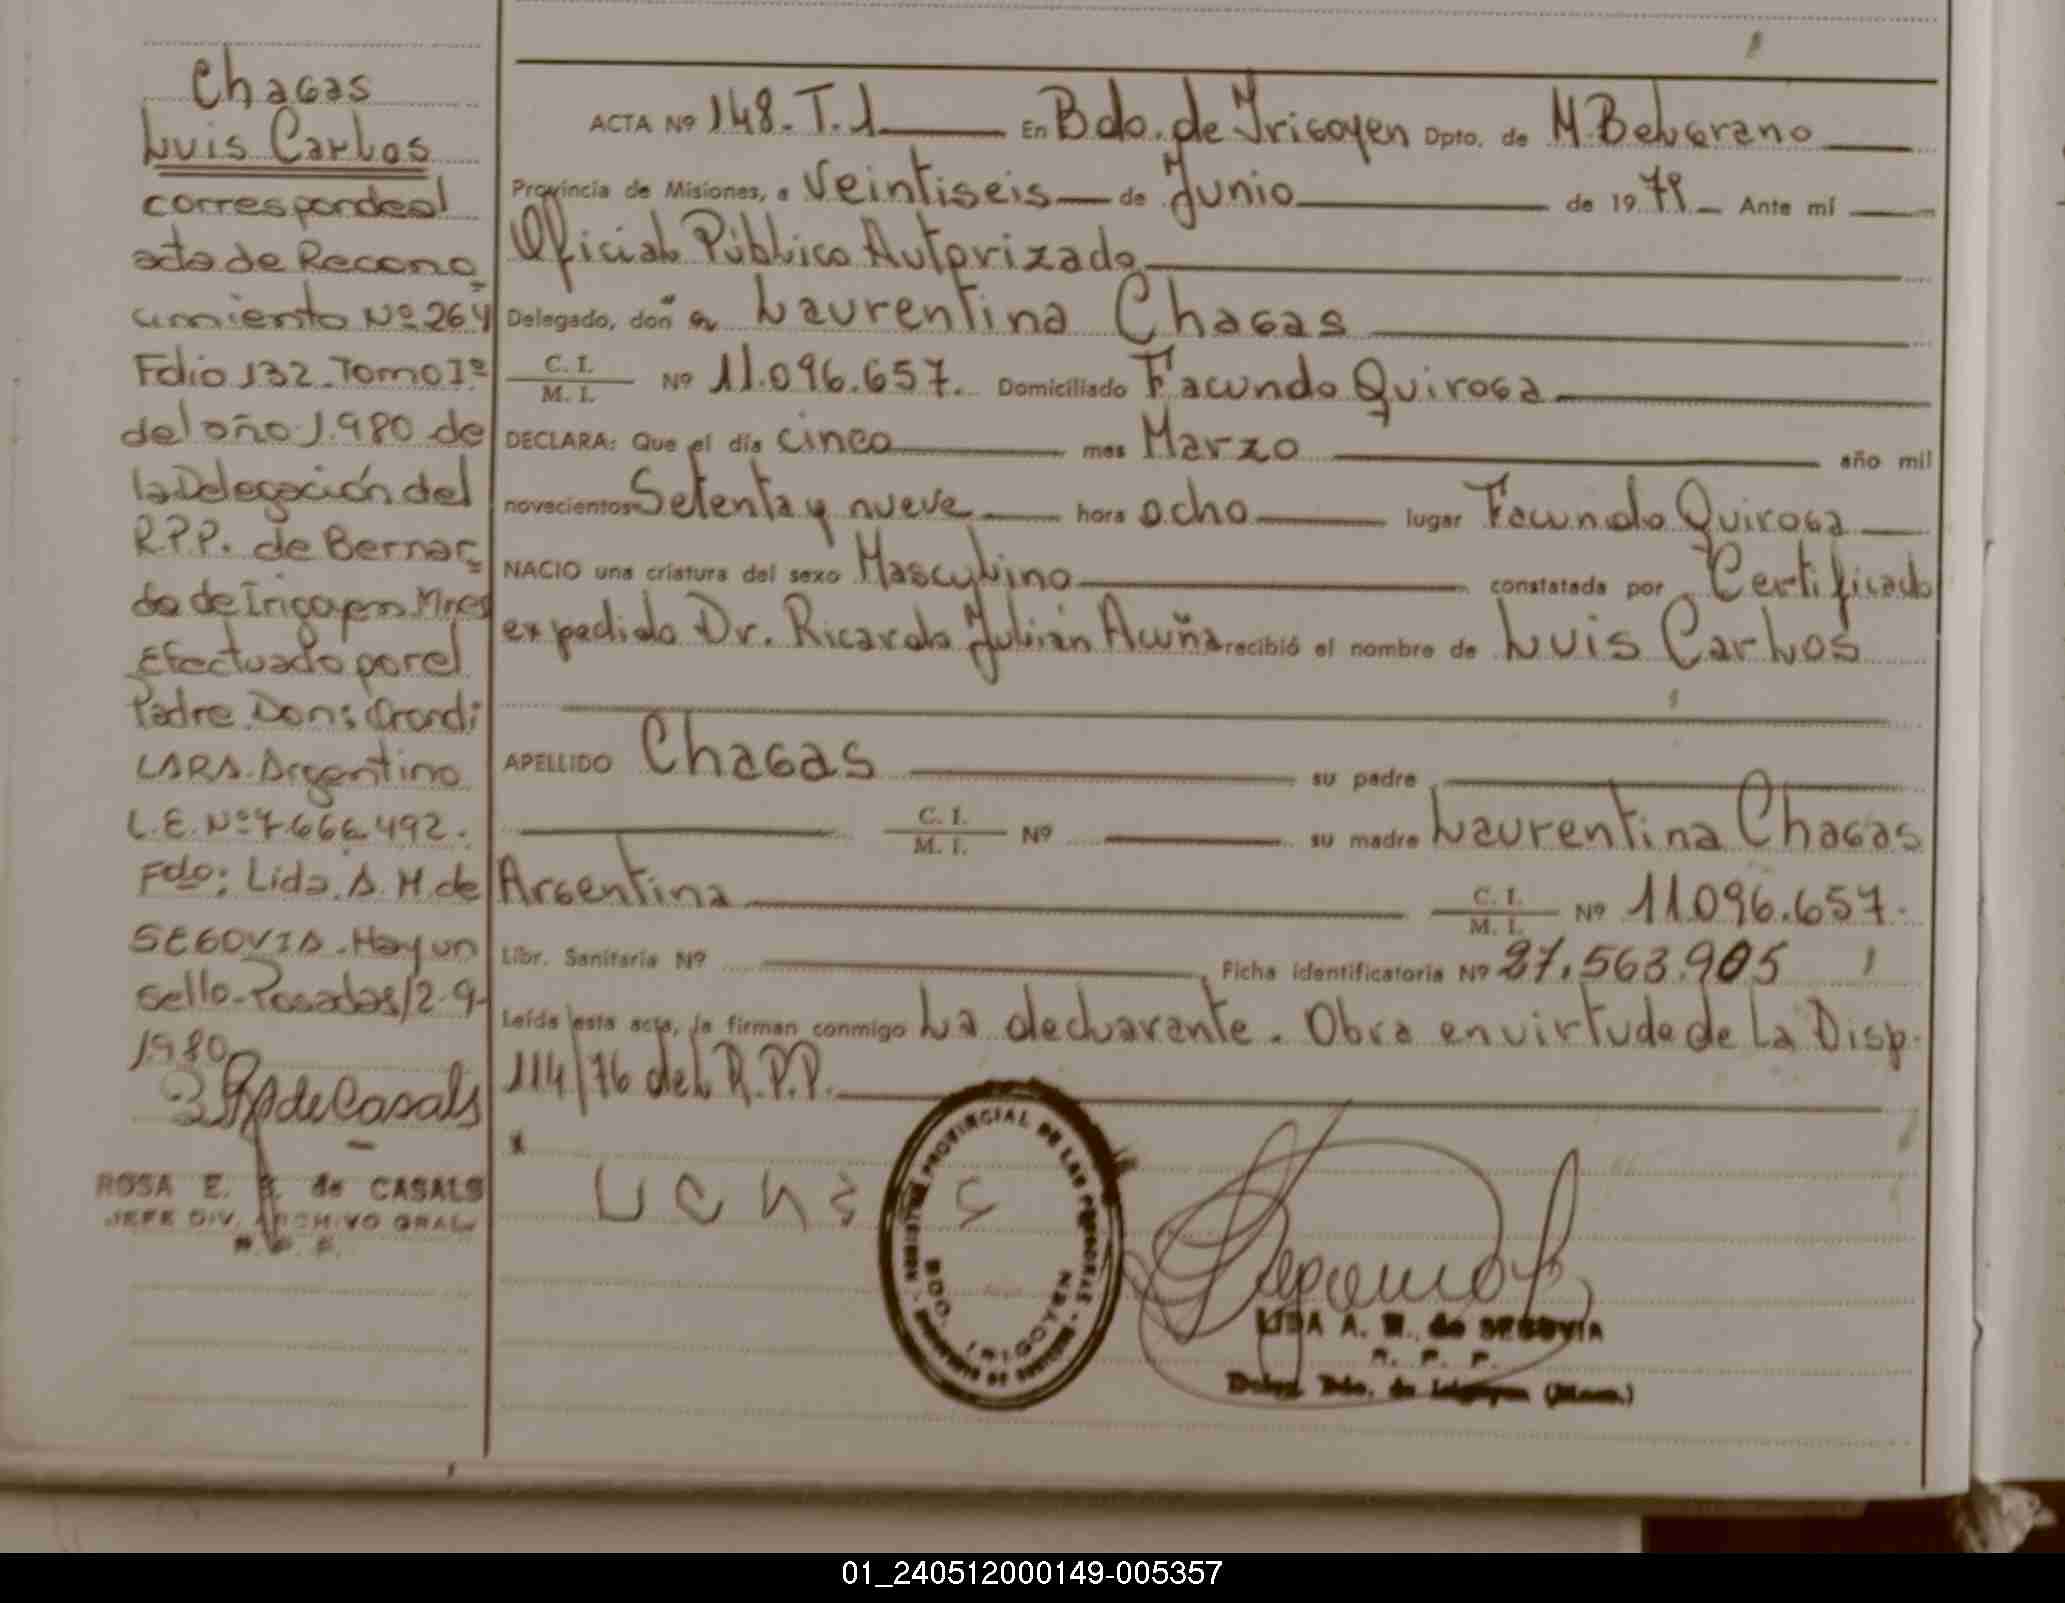 Chagas
Luis Carlos
corresponde al
acta de Recono
cimiento Nº 264
Folio 132. Tomo Iº
del año 1.980 de
la Delegación del
R.P.P. de Bernar
do de Irigoyen Mnes
Efectuado por el
Padre Don:
LARA. Argentino
L.E. Nº 7.666.492.
Fdo: Lida. A. M. de
SEGOVIA. Hay un
sello. Posadas, 12-9-
1980
de Casals
ROSA E. de CASALS
JEFE DIV. ARCHIVO GRAL.
R. P. P.
ACTA Nº 148. T. 1 En Bdo. de Irigoyen Dpto. de M. Belgrano
Provincia de Misiones, a Veintiseis de Junio de 19 79 Ante mí
Oficial Público Autorizado
Delegado, doñ a Laurentina Chagas
C. I.
M. I. Nº 11.096.657. Domiciliado Facundo Quiroga
DECLARA: Que el día cinco mes Marzo año mil
novecientos Setenta y nueve hora ocho lugar Facundo Quiroga
NACIO una criatura del sexo Masculino constatada por Certificado
expedido Dr. Ricardo Julián Acuña recibió el nombre de Luis Carlos
APELLIDO Chagas su padre
C. I.
M. I. Nº su madre Laurentina Chagas
Argentina C. I.
M. I. Nº 11.096.657.
Libr. Sanitaria Nº Ficha identificatoria Nº 27.563.905
Leída esta acta, la firman conmigo La declarante. Obra en virtud de de La Disp.
114/76 del R.P.P.
REGISTRO PROVINCIAL DE LAS PERSONAS
BDO. IRIGOYEN
LIDA A. M. de SEGOVIA
R. P. P.
Deleg. Bdo. de Irigoyen (Mnes.)
01_240512000149-005357